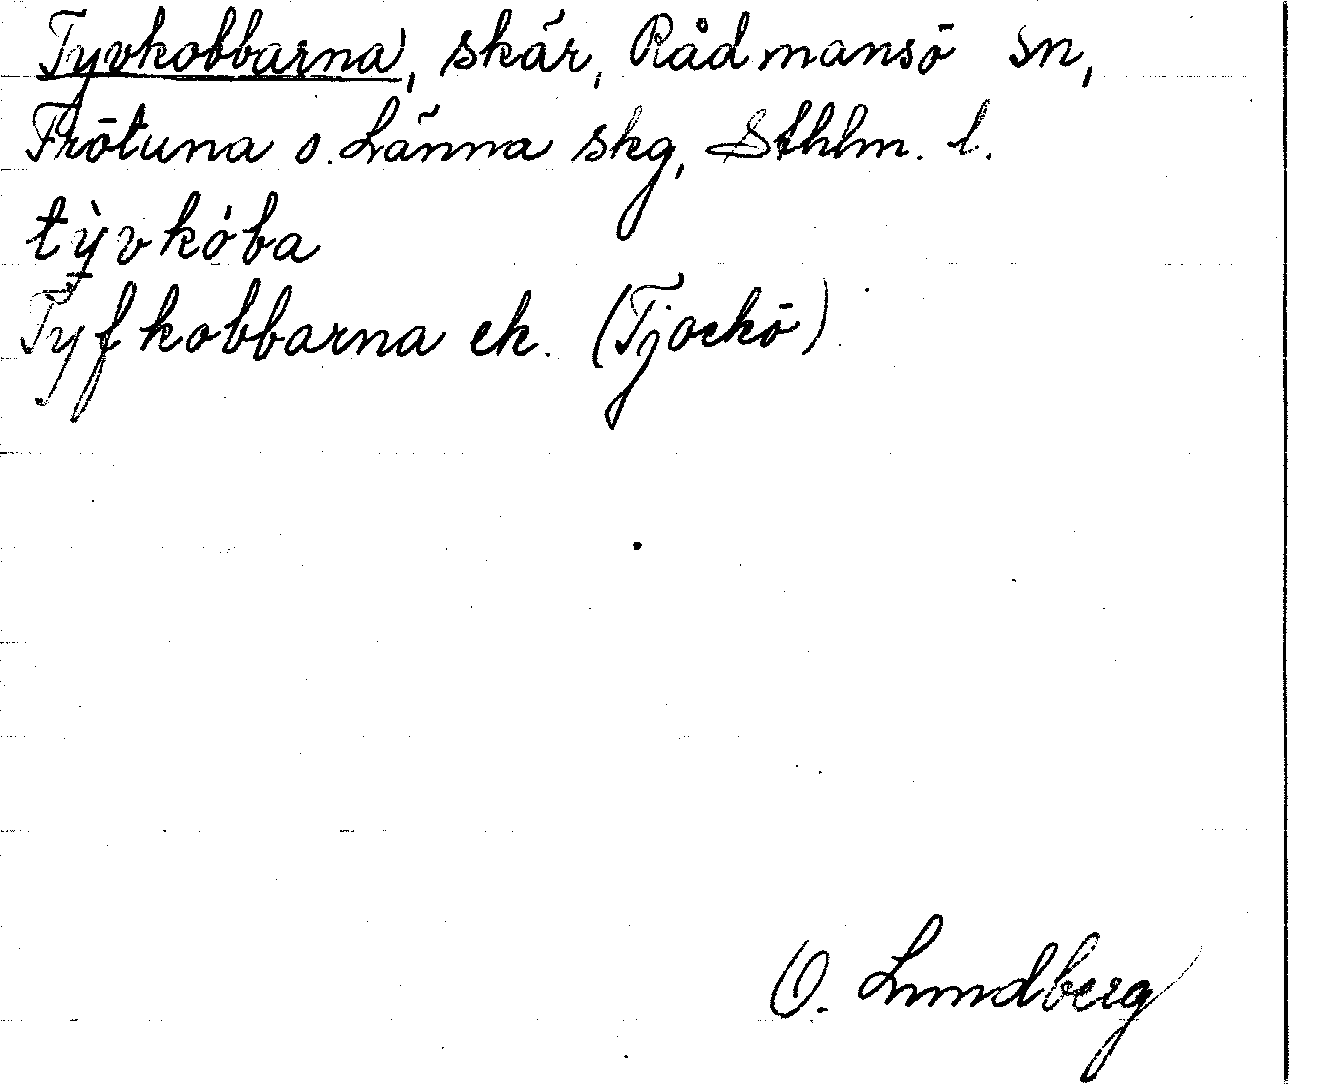 Tyvkobbarna, skär, Rådmansö sn,
Frötuna o. Länna skg, Sthlm. l.
tỳvkȯba
Tyfkobbarna ek. (Tjockö)
O. Lundberg